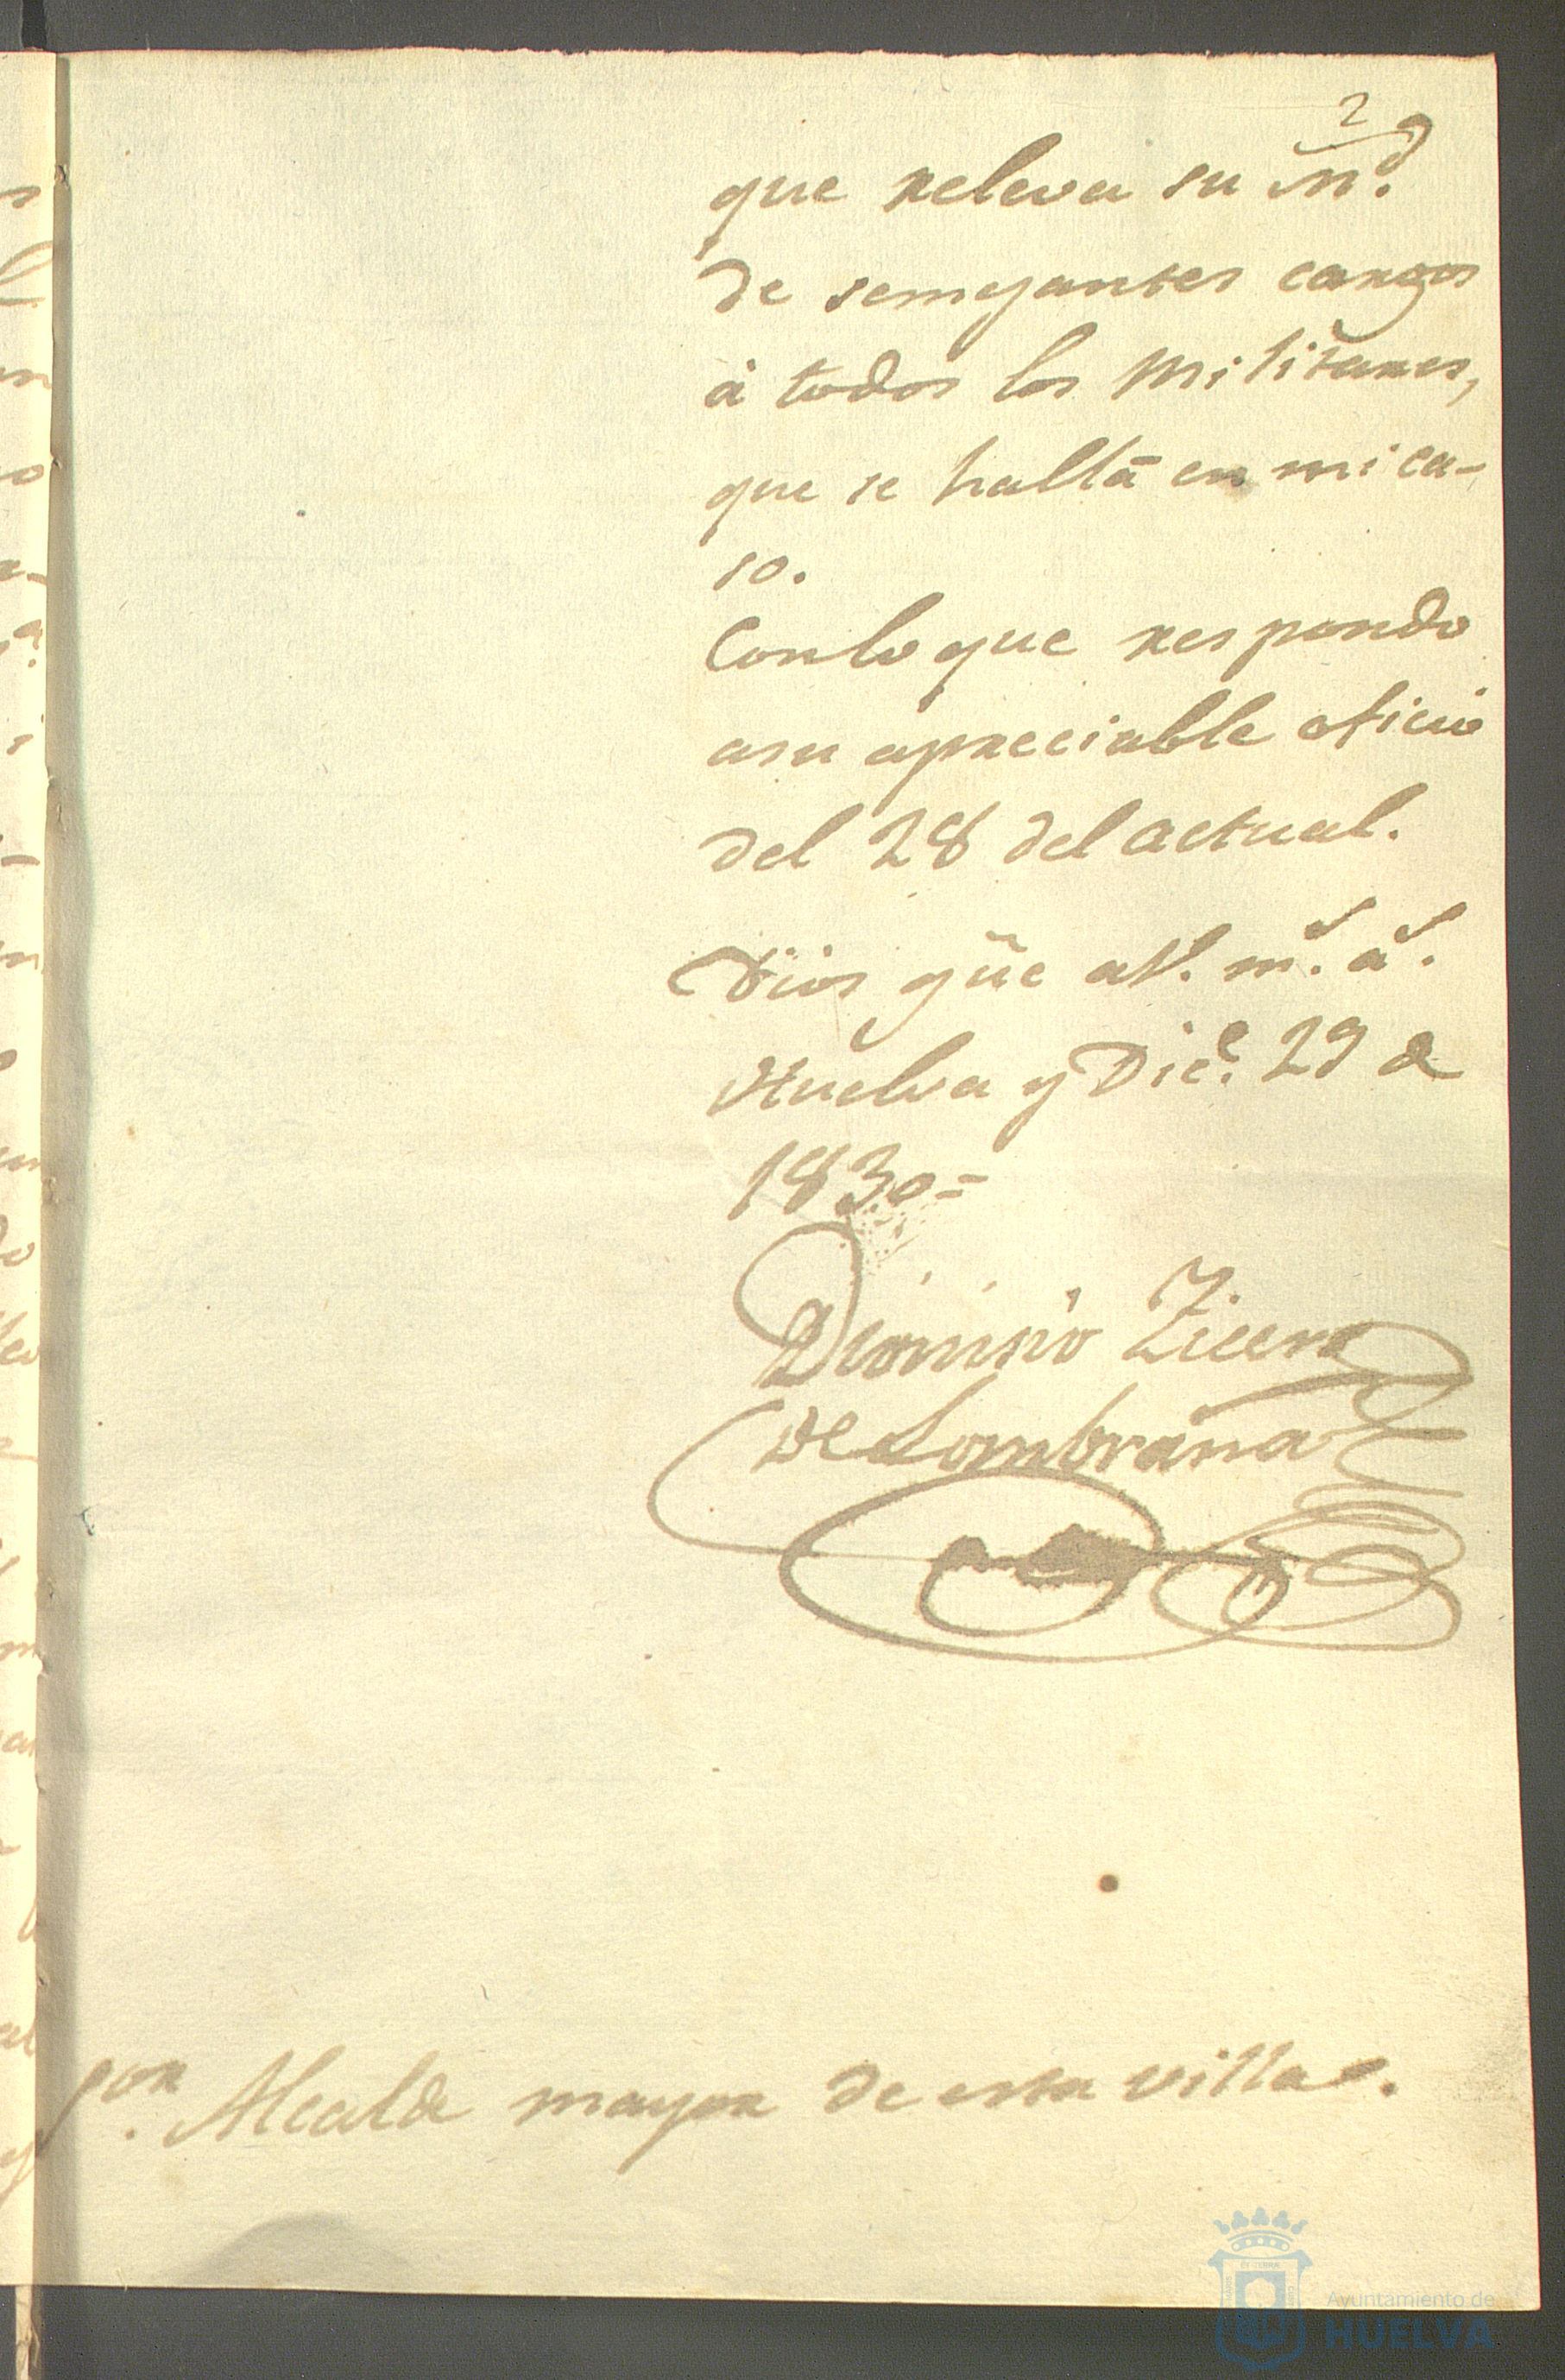 2
que releva su m̃.d
de semejantes cargos
á todos los Militares,
que se hallã en mi ca-
so.
Con lo que respondo
a su apreciable oficio
del 28 del actual.
Dios gũe a V. m.s a.s
Huelva y Dic.e 29 de
1830=
Dionisio
de Lombraña
S.or Alcalde mayor de esta villa.
Ayuntamiento de
HUELVA